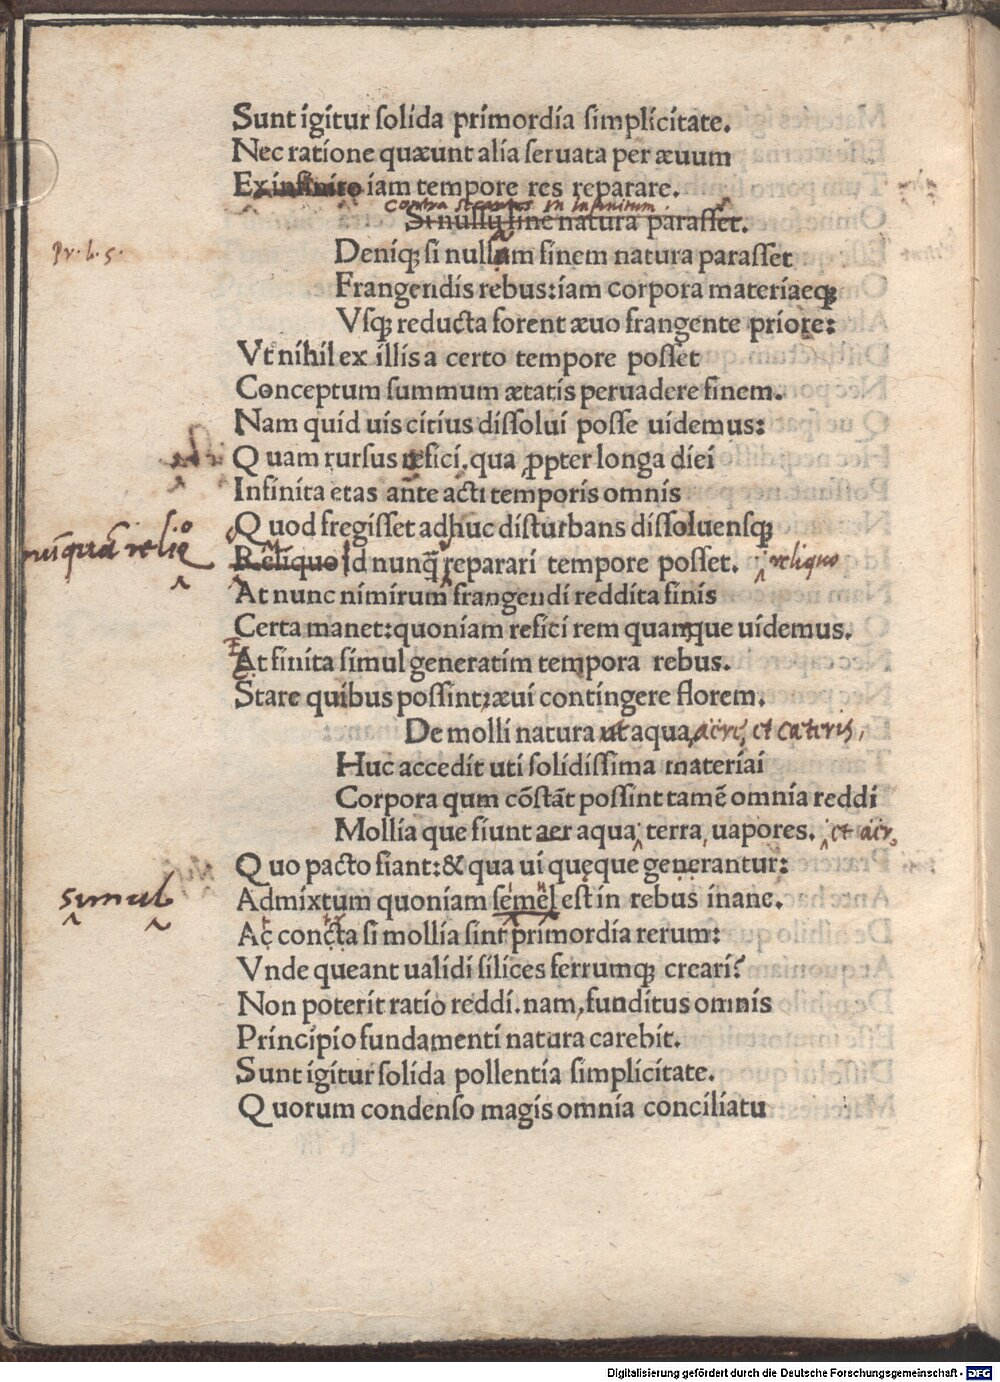 Sunt igitur solida primordia simplicitate.
Nec ratione quæunt alia seruata per æuum
Ex infinito iam tempore res reparare.
contra secantes in infinitum.
Si nullu sine natura parasset.
pr. l. s.
Deniq; si nullam finem natura parasset
Frangendis rebus: iam corpora materiaeq;
Vsq; reducta forent æuo frangente priore:
Vt nihil ex illis a certo tempore posset
Conceptum summum ætatis peruadere finem.
Nam quid uis citius dissolui posse uidemus:
Quam rursus refici. qua ꝓpter longa diei
Infinita etas ante acti temporis omnis
Quod fregisset adhuc disturbans dissoluensq;
nūquā relio
Reliquo Id nunq̃ reparari tempore posset. reliquo
At nunc nimirum frangendi reddita finis
Certa manet: quoniam refici rem quanque uidemus.
Et
At finita simul generatim tempora rebus.
Stare quibus possint; æui contingere florem.
De molli natura ut aqua, aeris, et cæteris,
Huc accedit uti solidissima materiai
Corpora qum cõstãt possint tamẽ omnia reddi
Mollia que fiunt aer aqua, terra, uapores. et aer,
Quo pacto fiant: & qua ui quęque generantur:
simul
Admixtum quoniam semel est in rebus inane.
Ac concta si mollia sint primordia rerum:
Vnde queant ualidi silices ferrumq; creari?
Non poterit ratio reddi. nam, funditus omnis
Principio fundamenti natura carebit.
Sunt igitur solida pollentia simplicitate.
Quorum condenso magis omnia conciliatu
Digitalisierung gefördert durch die Deutsche Forschungsgemeinschaft - DFG